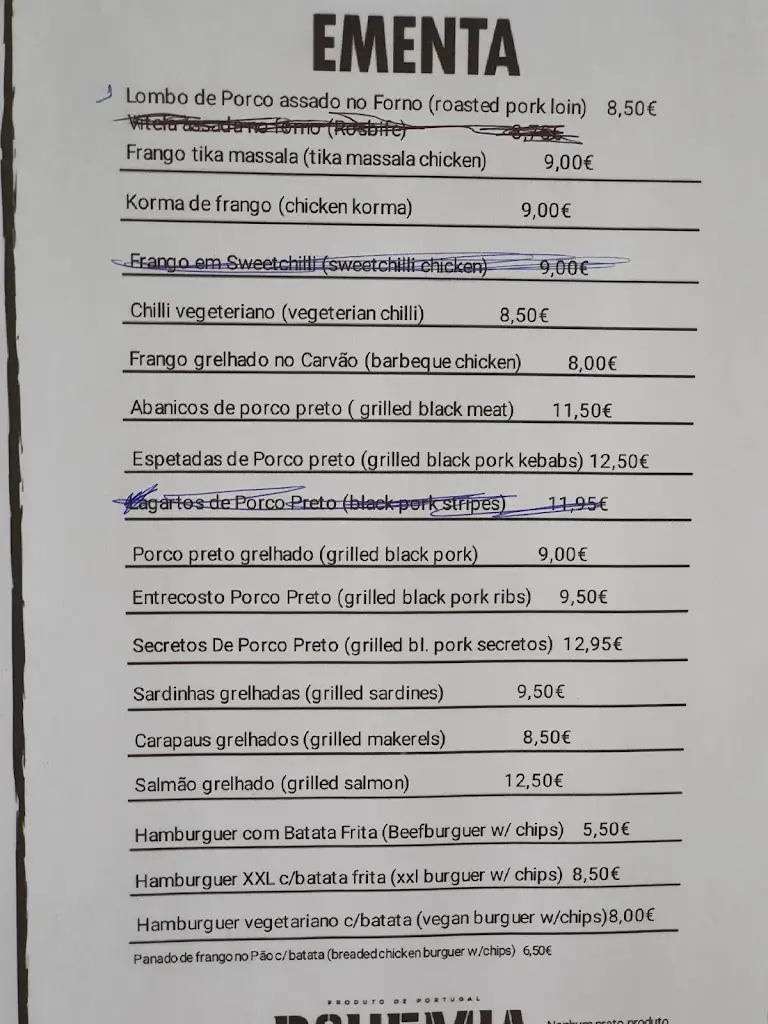 EMENTA
Lombo de Porco assado no Forno (roasted pork loin) 8,50€
Vitela assada no forno (Rosbife) 8,75€
Frango tika massala (tika massala chicken) 9,00€
Korma de frango (chicken korma) 9,00€
Frango em Sweetchilli (sweetchilli chicken) 9,00€
Chilli vegeteriano (vegeterian chilli) 8,50€
Frango grelhado no Carvão (barbeque chicken) 8,00€
Abanicos de porco preto ( grilled black meat) 11,50€
Espetadas de Porco preto (grilled black pork kebabs) 12,50€
Lagartos de Porco Preto (black pork stripes) 11,95€
Porco preto grelhado (grilled black pork) 9,00€
Entrecosto Porco Preto (grilled black pork ribs) 9,50€
Secretos De Porco Preto (grilled bl. pork secretos) 12,95€
Sardinhas grelhadas (grilled sardines) 9,50€
Carapaus grelhados (grilled makerels) 8,50€
Salmão grelhado (grilled salmon) 12,50€
Hamburguer com Batata Frita (Beefburguer w/ chips) 5,50€
Hamburguer XXL c/batata frita (xxl burguer w/ chips) 8,50€
Hamburguer vegetariano c/batata (vegan burguer w/chips)8,00€
Panado de frango no Pão c/ batata (breaded chicken burguer w/chips) 6,50€
PRODUTO DE PORTUGAL
BOHEMIA
Nenhum prato produto